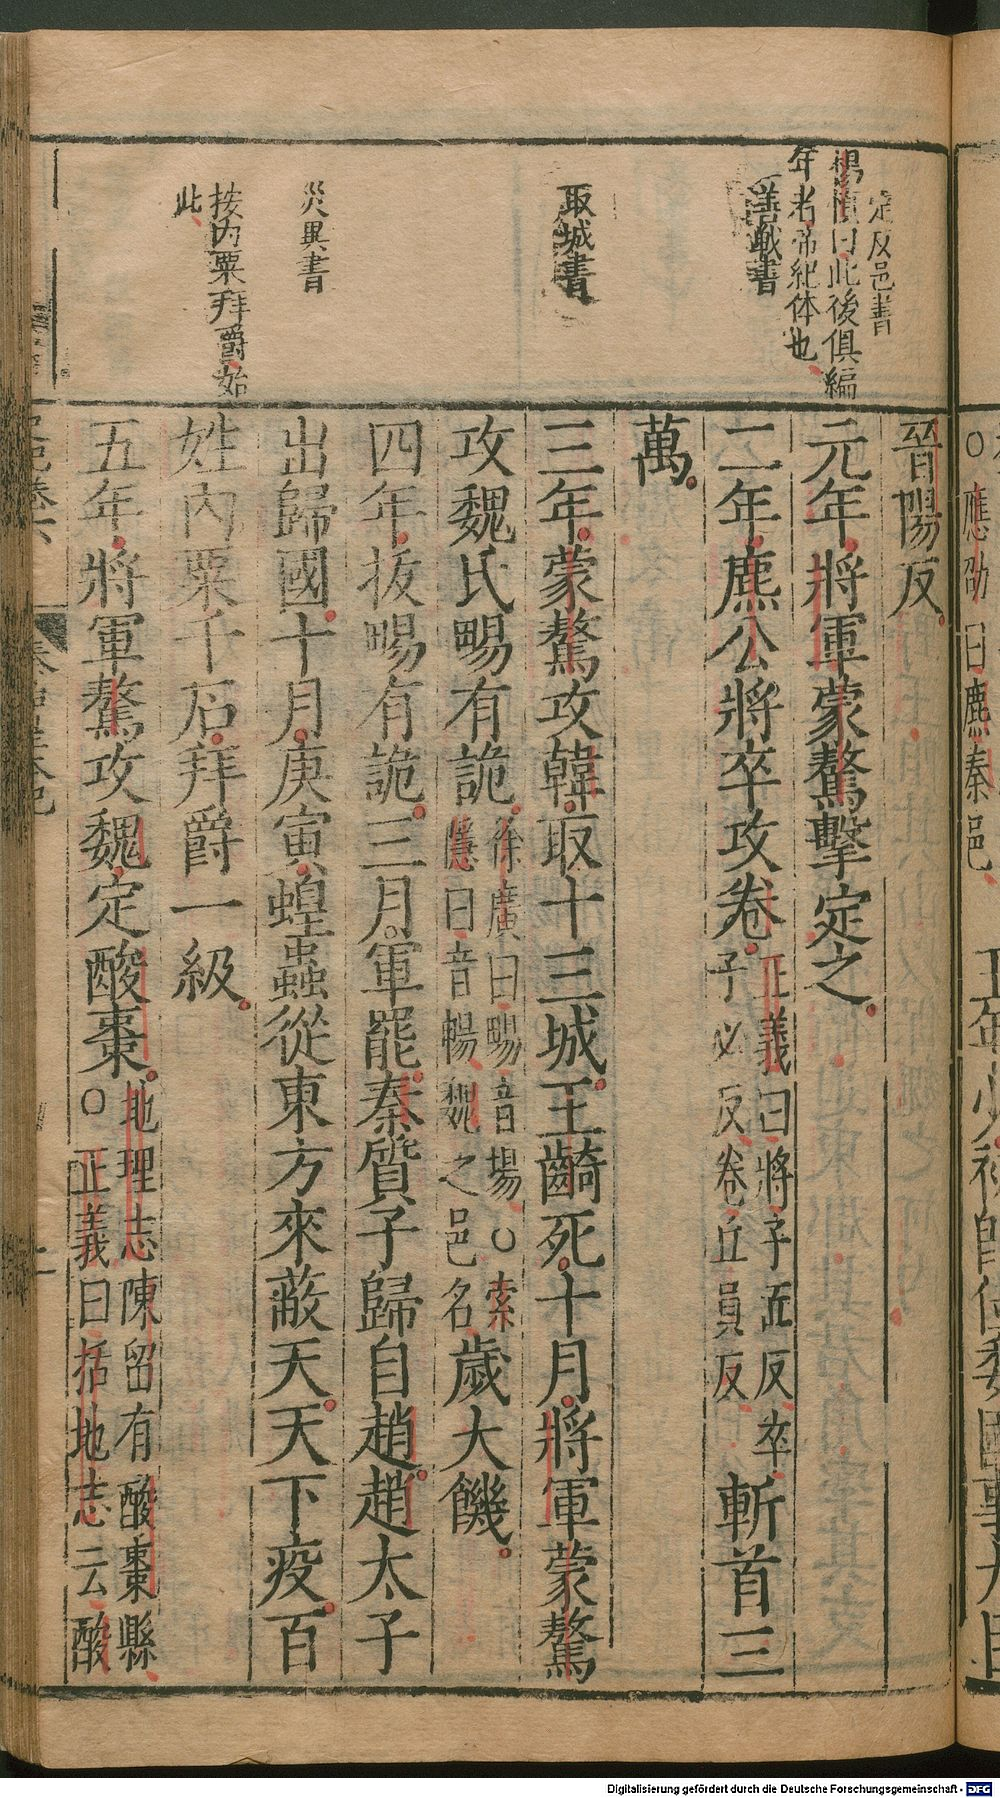 定反邑書
楊慎曰此後俱編
年者帝紀体也
善戰書
取城書
災異書
按内粟拜爵始
此
○應劭曰麃秦邑
晉陽反
元年將軍蒙驁擊定之
二年麃公將卒攻卷正義曰將子匠反卒
子必反卷丘員反斬首三
萬
三年蒙驁攻韓取十三城王齮死十月將軍蒙驁
攻魏氏畼有詭徐廣曰畼音場○索
隱曰音暢魏之邑名歲大饑
四年拔畼有詭三月軍罷秦質子歸自趙趙太子
出歸國十月庚寅蝗蟲從東方來蔽天天下疫百
姓內粟千石拜爵一級
五年將軍驁攻魏定酸棗地理志陳留有酸棗縣
○正義曰括地志云酸
Digitalisierung gefördert durch die Deutsche Forschungsgemeinschaft - DFG